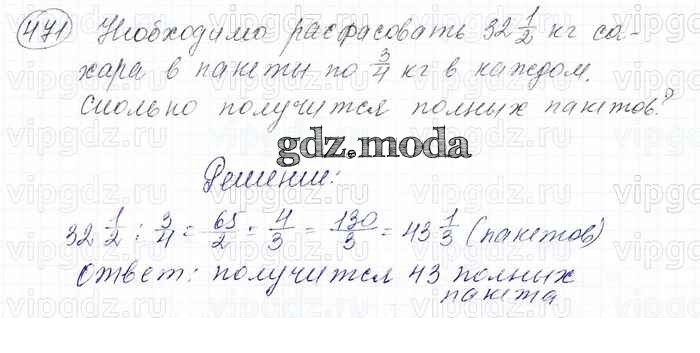 471 Необходимо расфасовать 32 1/2 кг са-
хара в пакеты по 3/4 кг в каждом.
Сколько получится полных пакетов?
gdz.moda
Решение:
32 1/2 : 3/4 = 65/2 · 4/3 = 130/3 = 43 1/3 (пакетов)
Ответ: получится 43 полных
пакета
vipgdz.ru